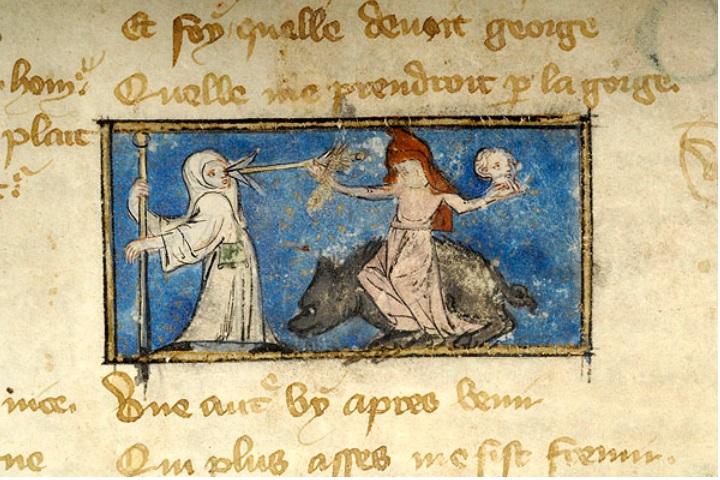 Et soy quelle devoit george
hom̃
Quelle me prendroit p la gorge.
plait
Une aut᷑ vy apres venir
Qui plus asses me fist fremir.
ne